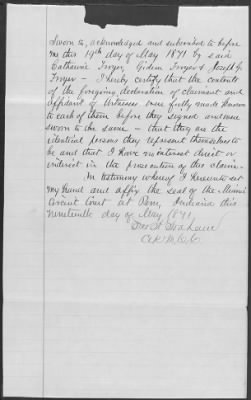 Sworn to, acknowledged and subscribed to before
me this 19th day of May 1871 by said
Catharine Fryer, Gideon Fryer & Joseph G.
Fryer - I hereby certify that the contents
of the foregoing declaration of claimant and
affidavit of witnesses were fully made known
to each of them before they signed and were
sworn to the same - that they are the
identical persons they represent themselves to
be and that I have no interest direct or
indirect in the prosecution of this claim.
In testimony whereof I hereunto set
my hand and affix the seal of the Miami
Circuit Court at Peru, Indiana this
nineteenth day of May 1871,
Clk M.C.C.